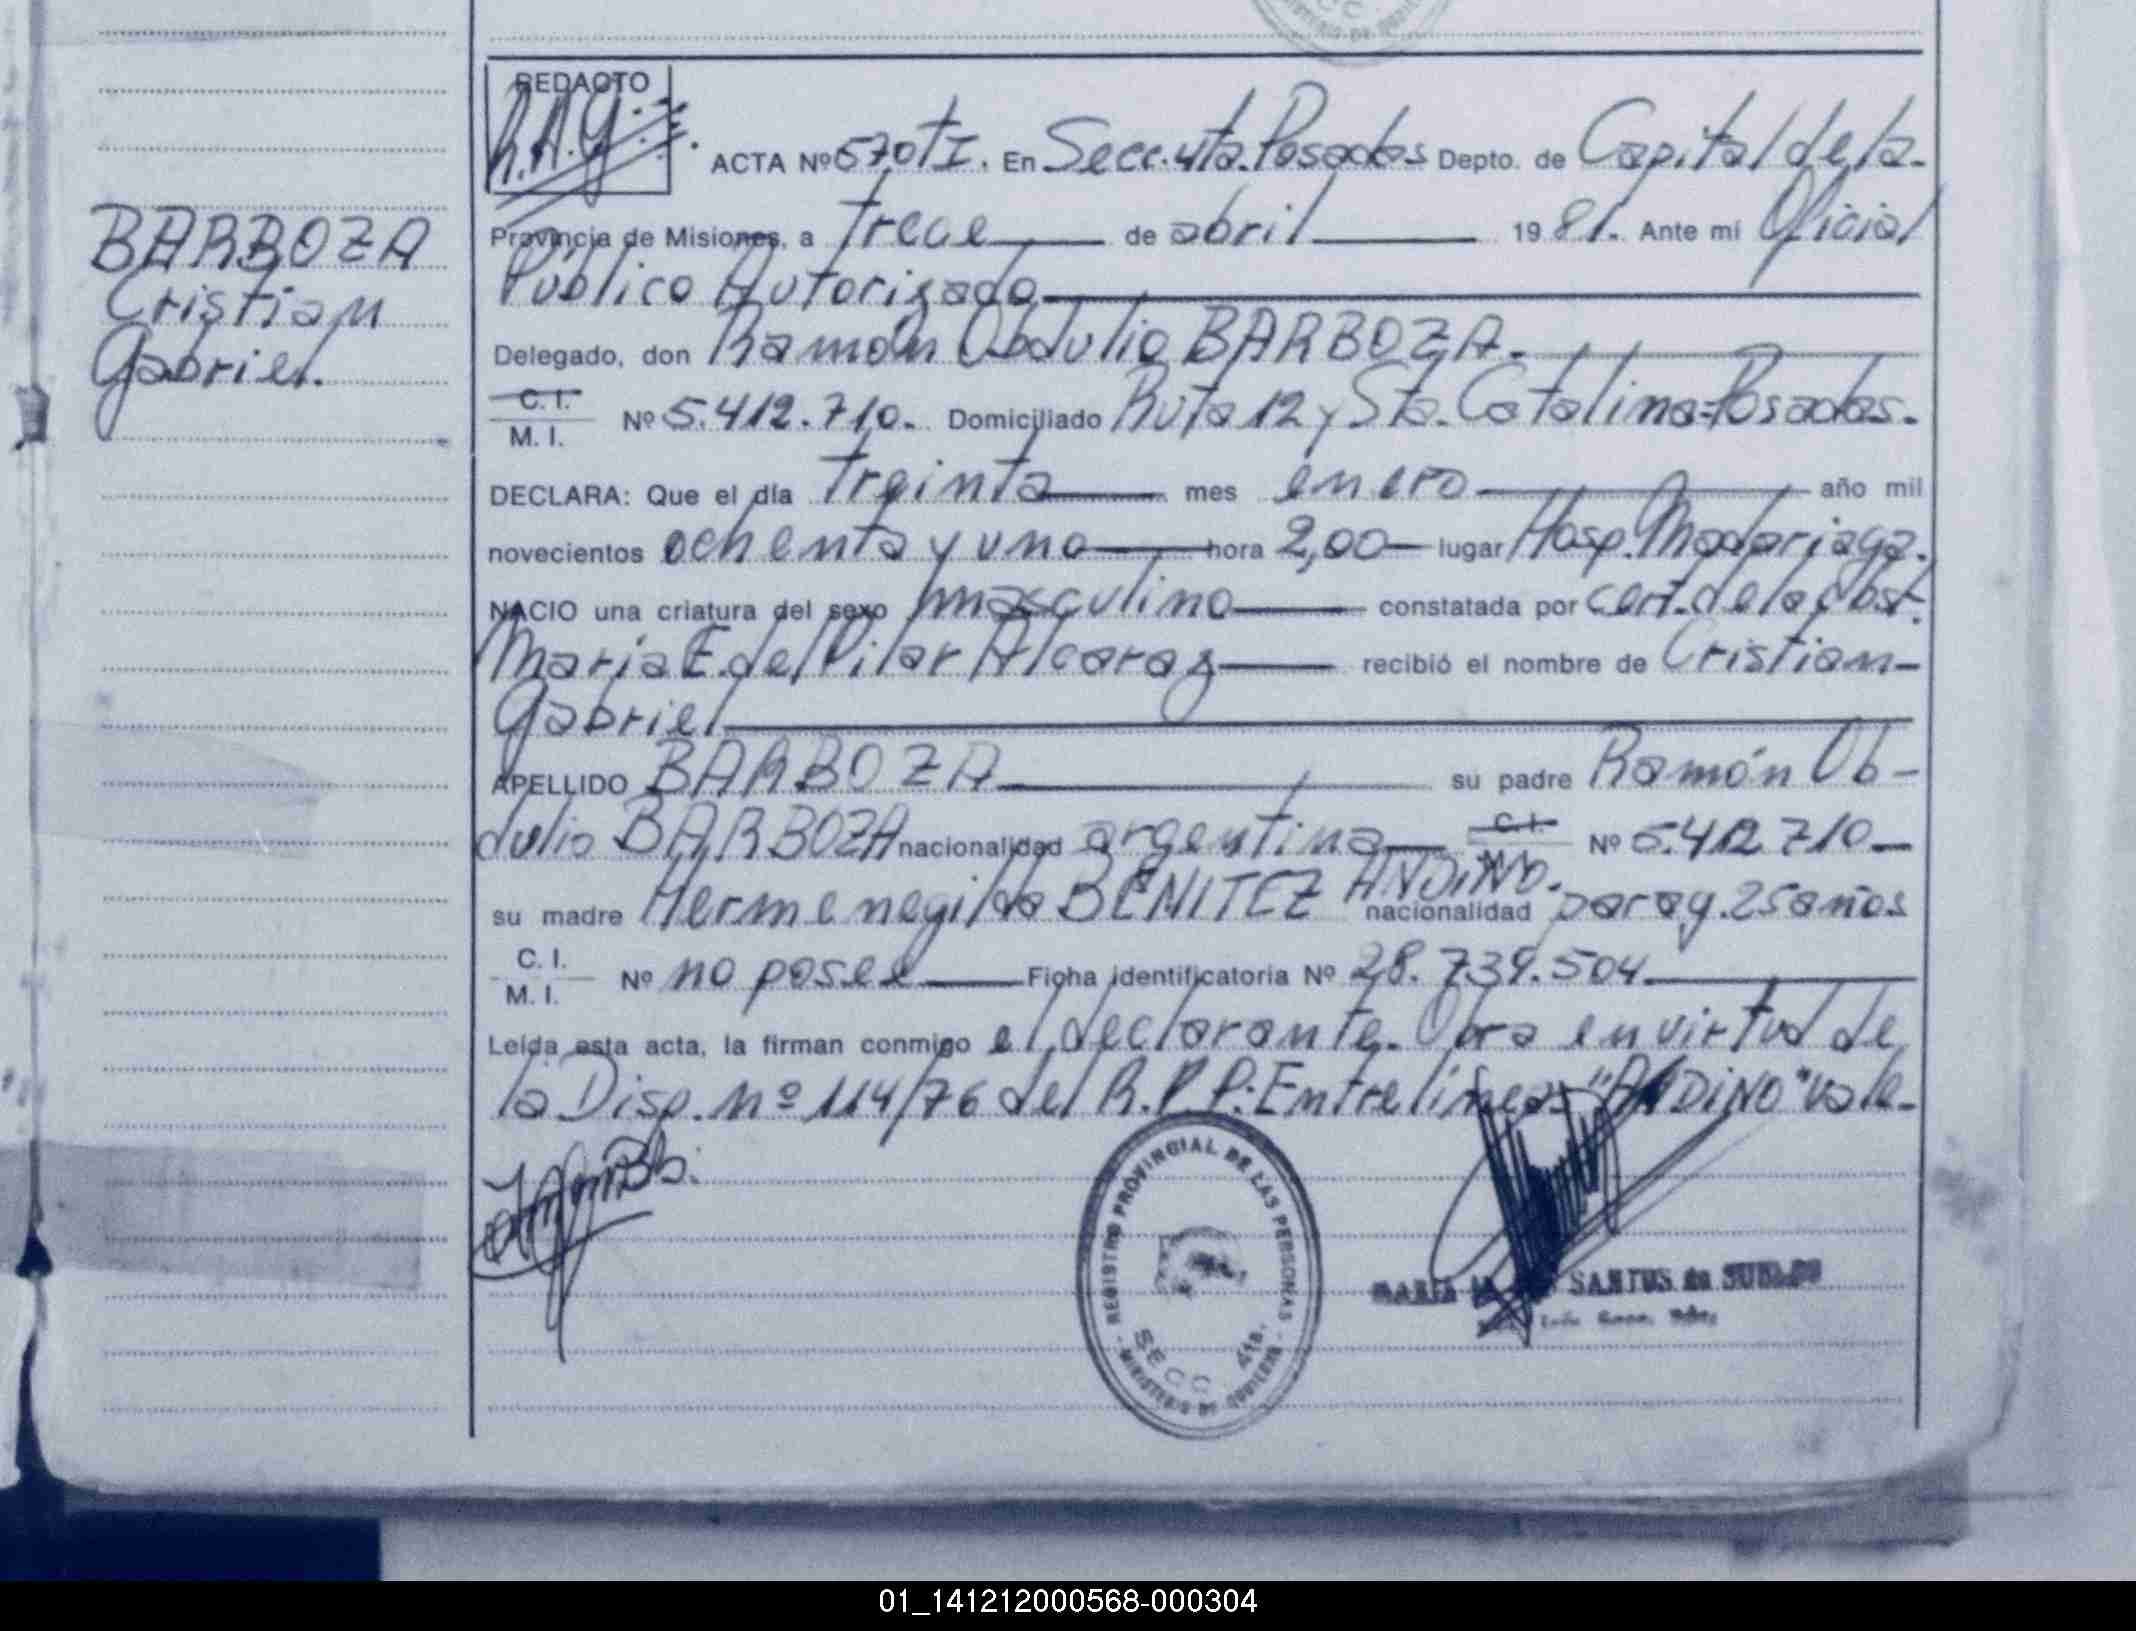 REDACTO
R.A.G.
ACTA Nº 570 TI. En Secc. 4ta. Posadas Depto. de Capital de la
Provincia de Misiones, a trece de abril 1981. Ante mí Oficial
Público Autorizado
Delegado, don Ramón Obdulio BARBOZA.
C. I.
M. I.
Nº 5.412.710. Domiciliado Ruta 12 y Sta. Catalina=Posadas.
DECLARA: Que el día treinta mes enero año mil
novecientos ochenta y uno hora 2,00 lugar Hosp. Madariaga.
NACIO una criatura del sexo masculino constatada por cert. de la obst.
María E. del Pilar Alcaraz recibió el nombre de Cristian
Gabriel
APELLIDO BARBOZA su padre Ramón Ob-
dulio BARBOZA nacionalidad argentina C. I. Nº 5.412.710
ANDINO.
su madre Hermenegilda BENITEZ nacionalidad parag. 25 años
C. I.
M. I.
Nº no posee Ficha identificatoria Nº 28.739.504
Leída esta acta, la firman conmigo el declarante. Obra en virtud de
la Disp. nº 114/76 del R.P.P. Entrelíneas "ANDINO" vale
BARBOZA
Cristian
Gabriel.
REGISTRO PROVINCIAL DE LAS PERSONAS
SECC 4ta.
MINISTERIO DE GOBIERNO
MARIA SANTOS de
01_141212000568-000304